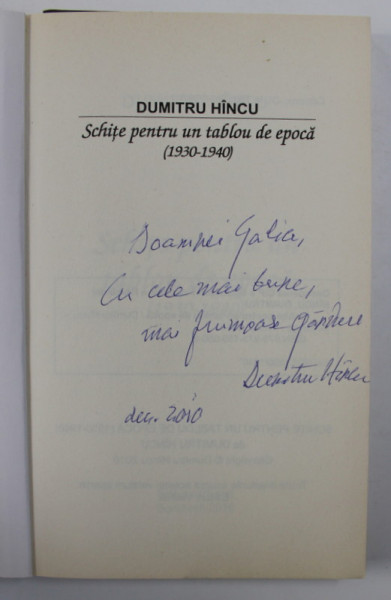 DUMITRU HÎNCU
Schițe pentru un tablou de epocă
(1930-1940)
Doamnei Galia,
Cu cele mai bune,
mai frumoase gânduri
Dumitru Hîncu
dec. 2010